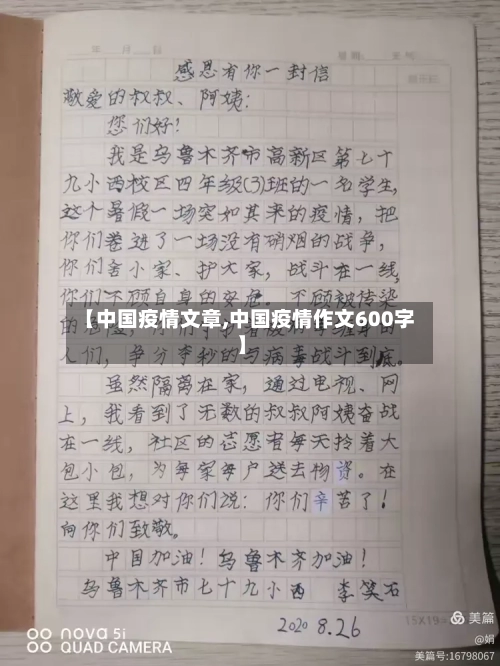 年 月 日 星期: 天气
感恩有你一封信
敬爱的叔叔、阿姨:
您们好!
我是乌鲁木齐市高新区第七十
九小西校区四年级(3)班的一名学生,
这个暑假一场突如其来的疫情,把
你们卷进了一场没有硝烟的战争,
你们舍小家、护大家,战斗在一线,
你们不顾自身的安危。不顾被传染
【中国疫情文章,中国疫情作文600字
】
人们,争分夺秒的与病毒战斗到底。
虽然隔离在家,通过电视、网
上,我看到了无数的叔叔阿姨奋战
在一线,社区的志愿者每天拎着大
包小包,为每家每户送去物资。在
这里我想对你们说:你们辛苦了!
向你们致敬。
中国加油!乌鲁木齐加油!
乌鲁木齐市七十九小西 李笑石
2020 8.26
15X19
nova 5i
QUAD CAMERA
美篇
@娟
美篇号:16798067